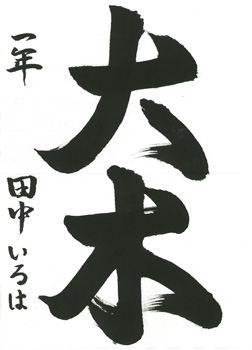 大木
一年 田中いろは